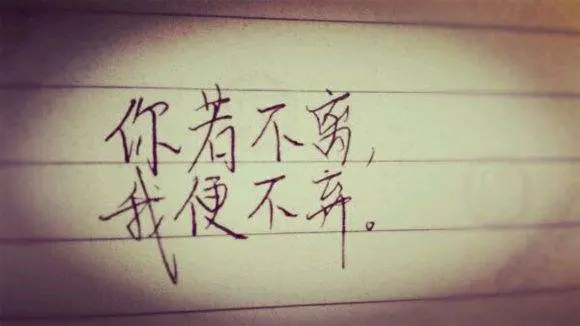 你若不离,
我便不弃。